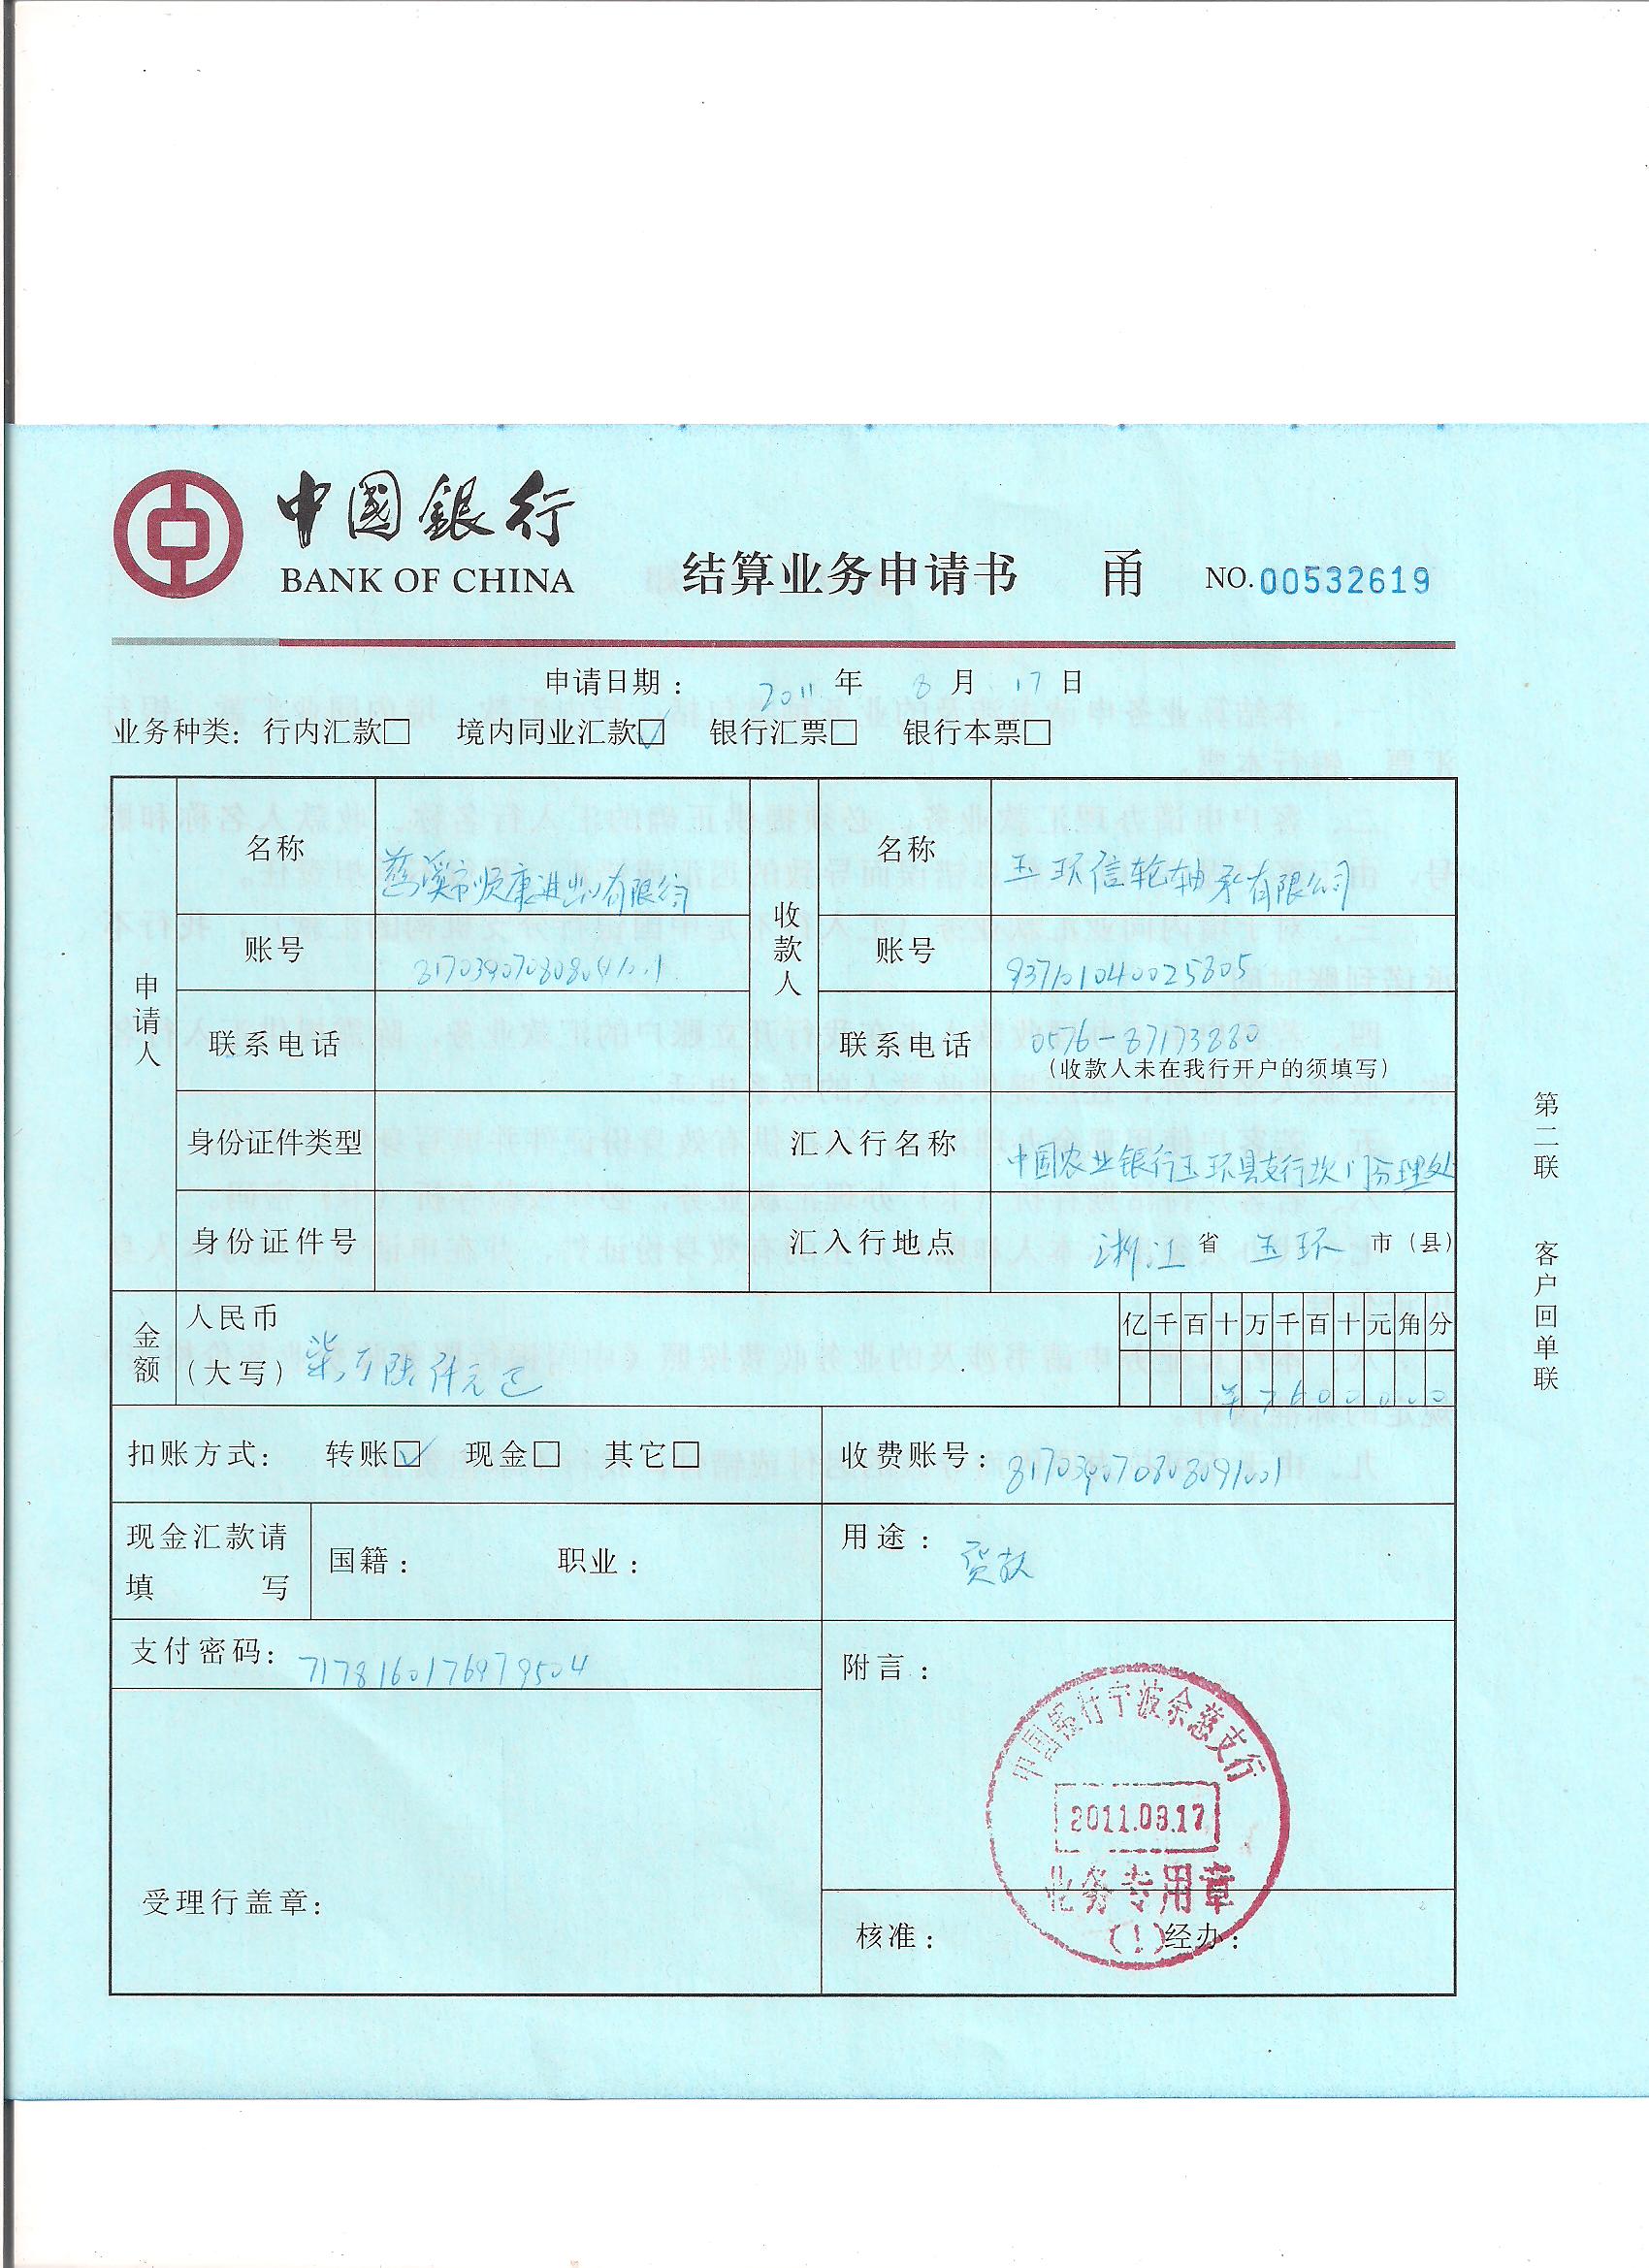 中國銀行
BANK OF CHINA
结算业务申请书 甬 NO.00532619
申请日期： 2011 年 8 月 17 日
业务种类：行内汇款□ 境内同业汇款☑ 银行汇票□ 银行本票□
申请人
名称 慈溪市顺康进出口有限公司
账号
联系电话
身份证件类型
身份证件号
收款人
名称 玉环信轮轴承有限公司
账号 937101040025805
联系电话 0576-87173880
（收款人未在我行开户的须填写）
汇入行名称 中国农业银行玉环县支行坎门分理处
汇入行地点 浙江 省 玉环 市（县）
金额
人民币
（大写） 柒万陆仟元正
亿 千 百 十 万 千 百 十 元 角 分
¥ 7 6 0 0 0 0 0
扣账方式： 转账☑ 现金□ 其它□
收费账号： 817039070808091001
现金汇款请
填 写
国籍： 职业：
用途： 货款
支付密码： 7178160176979504
附言：
中国银行宁波余慈支行
2011.08.17
业务专用章
(1)
受理行盖章：
核准： 经办：
第二联 客户回单联